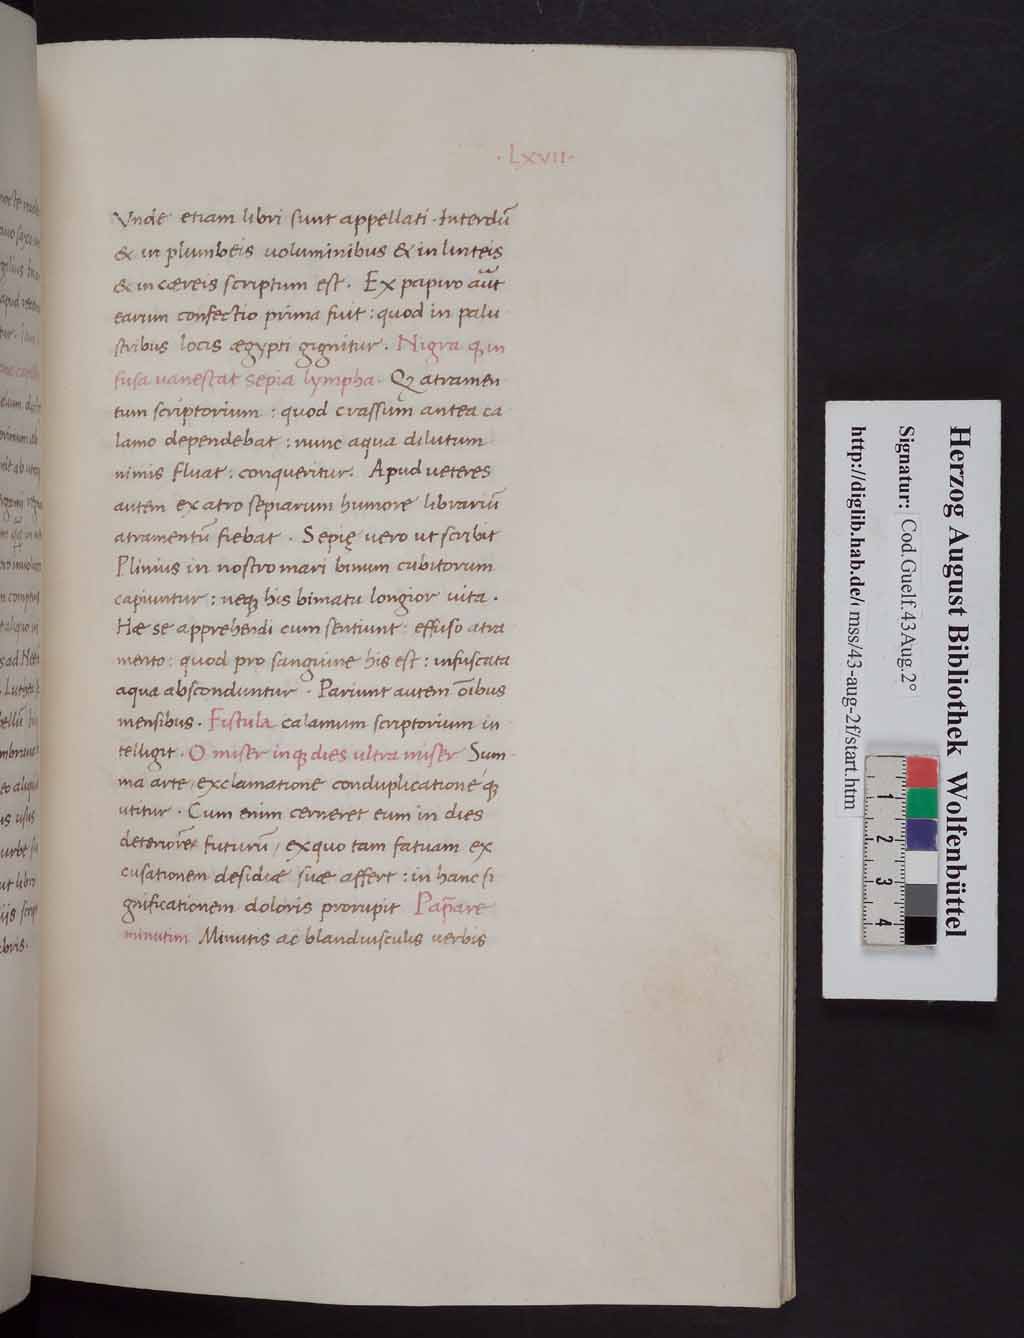 · LXVII ·
Vnde etiam libri sunt appellati · Interdũ
& in plumbeis uoluminibus & in linteis
& in cæreis scriptum est . Ex papiro aũt
earum confectio prima fuit : quod in palu
stribus locis ægypti gignitur . Nigra q, in
fusa uanescat sepia lympha · Q, atramen
tum scriptorium : quod crassum antea ca
lamo dependebat : nunc aqua dilutum
nimis fluat : conqueritur . Apud ueteres
autem ex atro sepiarum humore librariũ
atramentũ fiebat . Sepię uero ut scribit
Plinius in nostro mari binum cubitorum
capiuntur : neq, his bimatu longior uita .
Hæ se apprehendi cum sentiunt : effuso atra
mento : quod pro sanguine his est : infuscata
aqua absconduntur · Pariunt autem õibus
mensibus . Fistula calamum scriptorium in
telligit . O miser inq, dies ultra miser Sum
ma arte exclamatione conduplicatione q,
utitur . Cum enim cerneret eum in dies
deteriorẽ futurũ / exquo tam fatuam ex
cusationem desidiæ suæ affert : in hanc si
gnificationem doloris prorupit Pap̃are
minutim Minutis ac blandiusculis uerbis
Herzog August Bibliothek Wolfenbüttel
Signatur: Cod.Guelf.43 Aug.2°
http://diglib.hab.de/ mss/43-aug-2f/start.htm
1
2
3
4